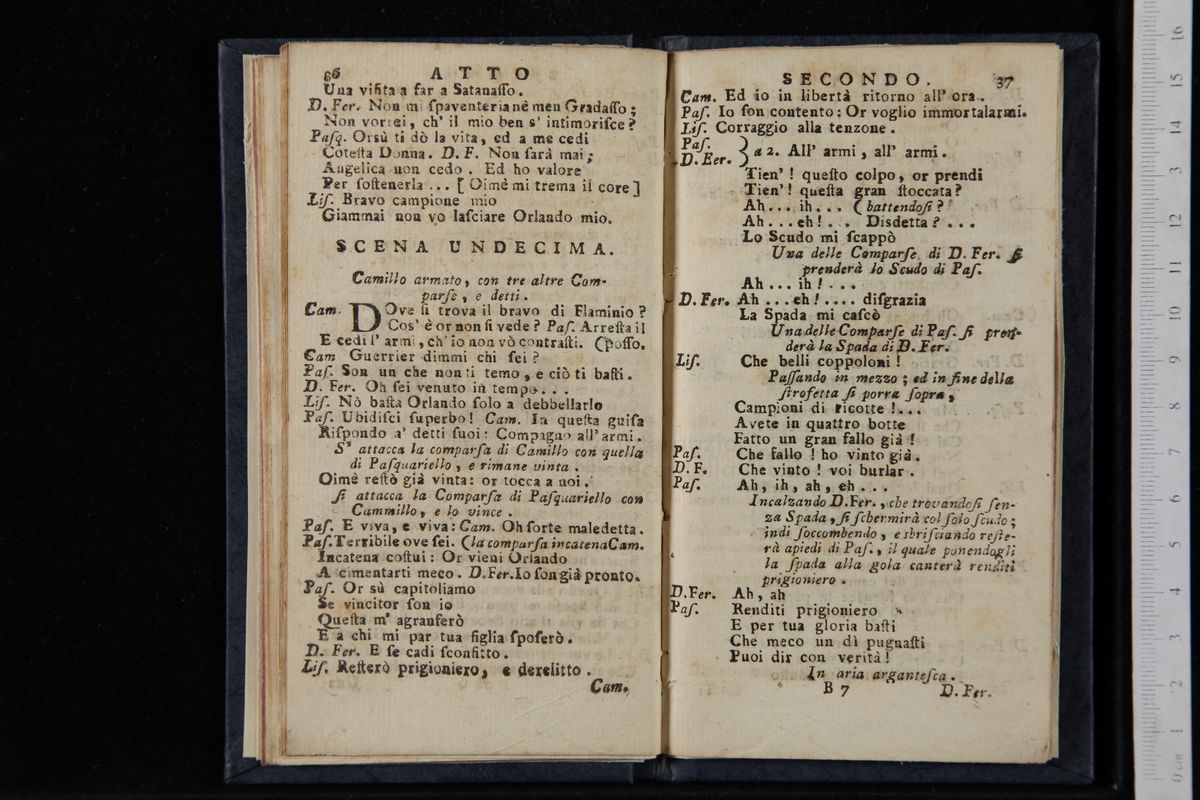 66 ATTO
Una viſita a far a Satanaſſo.
D. Fer. Non mi ſpaventeria nè men Gradaſſo;
Non vorrei, ch' il mio ben s' intimoriſce?
Paſq. Orsù ti dò la vita, ed a me cedi
Coteſta Donna. D. F. Non ſarà mai;
Angelica non cedo. Ed ho valore
Per ſoſtenerla ... [ Oimè mi trema il core ]
Liſ. Bravo campione mio
Giammai non vo laſciare Orlando mio.
SCENA UNDECIMA.
Camillo armato, con tre altre Com-
parſe, e detti.
Cam. DOve ſi trova il bravo di Flaminio?
Cos' è or non ſi vede? Paſ. Arreſta il
E cedi l' armi, ch' io non vò contraſti. (poſſo.
Cam Guerrier dimmi chi ſei?
Paſ. Son un che non ti temo, e ciò ti baſti.
D. Fer. Oh ſei venuto in tempo...
Liſ. Nò baſta Orlando ſolo a debbellarlo
Paſ. Ubidiſci ſuperbo! Cam. In queſta guiſa
Riſpondo a' detti ſuoi: Compagno all' armi.
S' attacca la comparſa di Camillo con quella
di Paſquariello, e rimane vinta.
Oimè reſtò già vinta: or tocca a noi.
ſi attacca la Comparſa di Paſquariello con
Cammillo, e lo vince.
Paſ. E viva, e viva: Cam. Oh ſorte maledetta.
Paſ. Terribile ove ſei. (la comparſa incatena Cam.
Incatena coſtui: Or vieni Orlando
A cimentarti meco. D. Fer. Io ſon già pronto.
Paſ. Or sù capitoliamo
Se vincitor ſon io
Queſta m' agranferò
E a chi mi par tua figlia ſpoſerò.
D. Fer. E ſe cadi ſconfitto.
Liſ. Reſterò prigioniero, e derelitto.
Cam.
SECONDO. 37
Cam. Ed io in libertà ritorno all' ora.
Paſ. Io ſon contento: Or voglio immortalarmi.
Liſ. Corraggio alla tenzone.
Paſ.
D. Eer. } a 2. All' armi, all' armi.
Tien'! queſto colpo, or prendi
Tien'! queſta gran ſtoccata?
Ah... ih... ( battendoſi?
Ah...eh!... Disdetta?...
Lo Scudo mi ſcappò
Una delle Comparſe di D. Fer. ſi
prenderà lo Scudo di Paſ.
Ah... ih!...
D. Fer. Ah...eh!.... diſgrazia
La Spada mi caſcò
Una delle Comparſe di Paſ. ſi pren-
derà la Spada di D. Fer.
Liſ. Che belli coppoloni!
Paſſando in mezzo; ed in fine della
ſtrofetta ſi porra ſopra,
Campioni di ricotte!...
Avete in quattro botte
Fatto un gran fallo già!
Paſ. Che fallo! ho vinto già.
D. F. Che vinto! voi burlar.
Paſ. Ah, ih, ah, eh...
Incalzando D. Fer., che trovandoſi ſen-
za Spada, ſi ſchermirà col ſolo ſcudo;
indi ſoccombendo, e sbriſciando reſte-
rà apiedi di Paſ., il quale ponendogli
la ſpada alla gola canterà renditi
prigioniero.
D. Fer. Ah, ah
Paſ. Renditi prigioniero
E per tua gloria baſti
Che meco un dì pugnaſti
Puoi dir con verità!
In aria arganteſca.
B 7 D. Fer.
16
15
14
13
12
11
10
9
8
7
6
5
4
3
2
1
0 cm